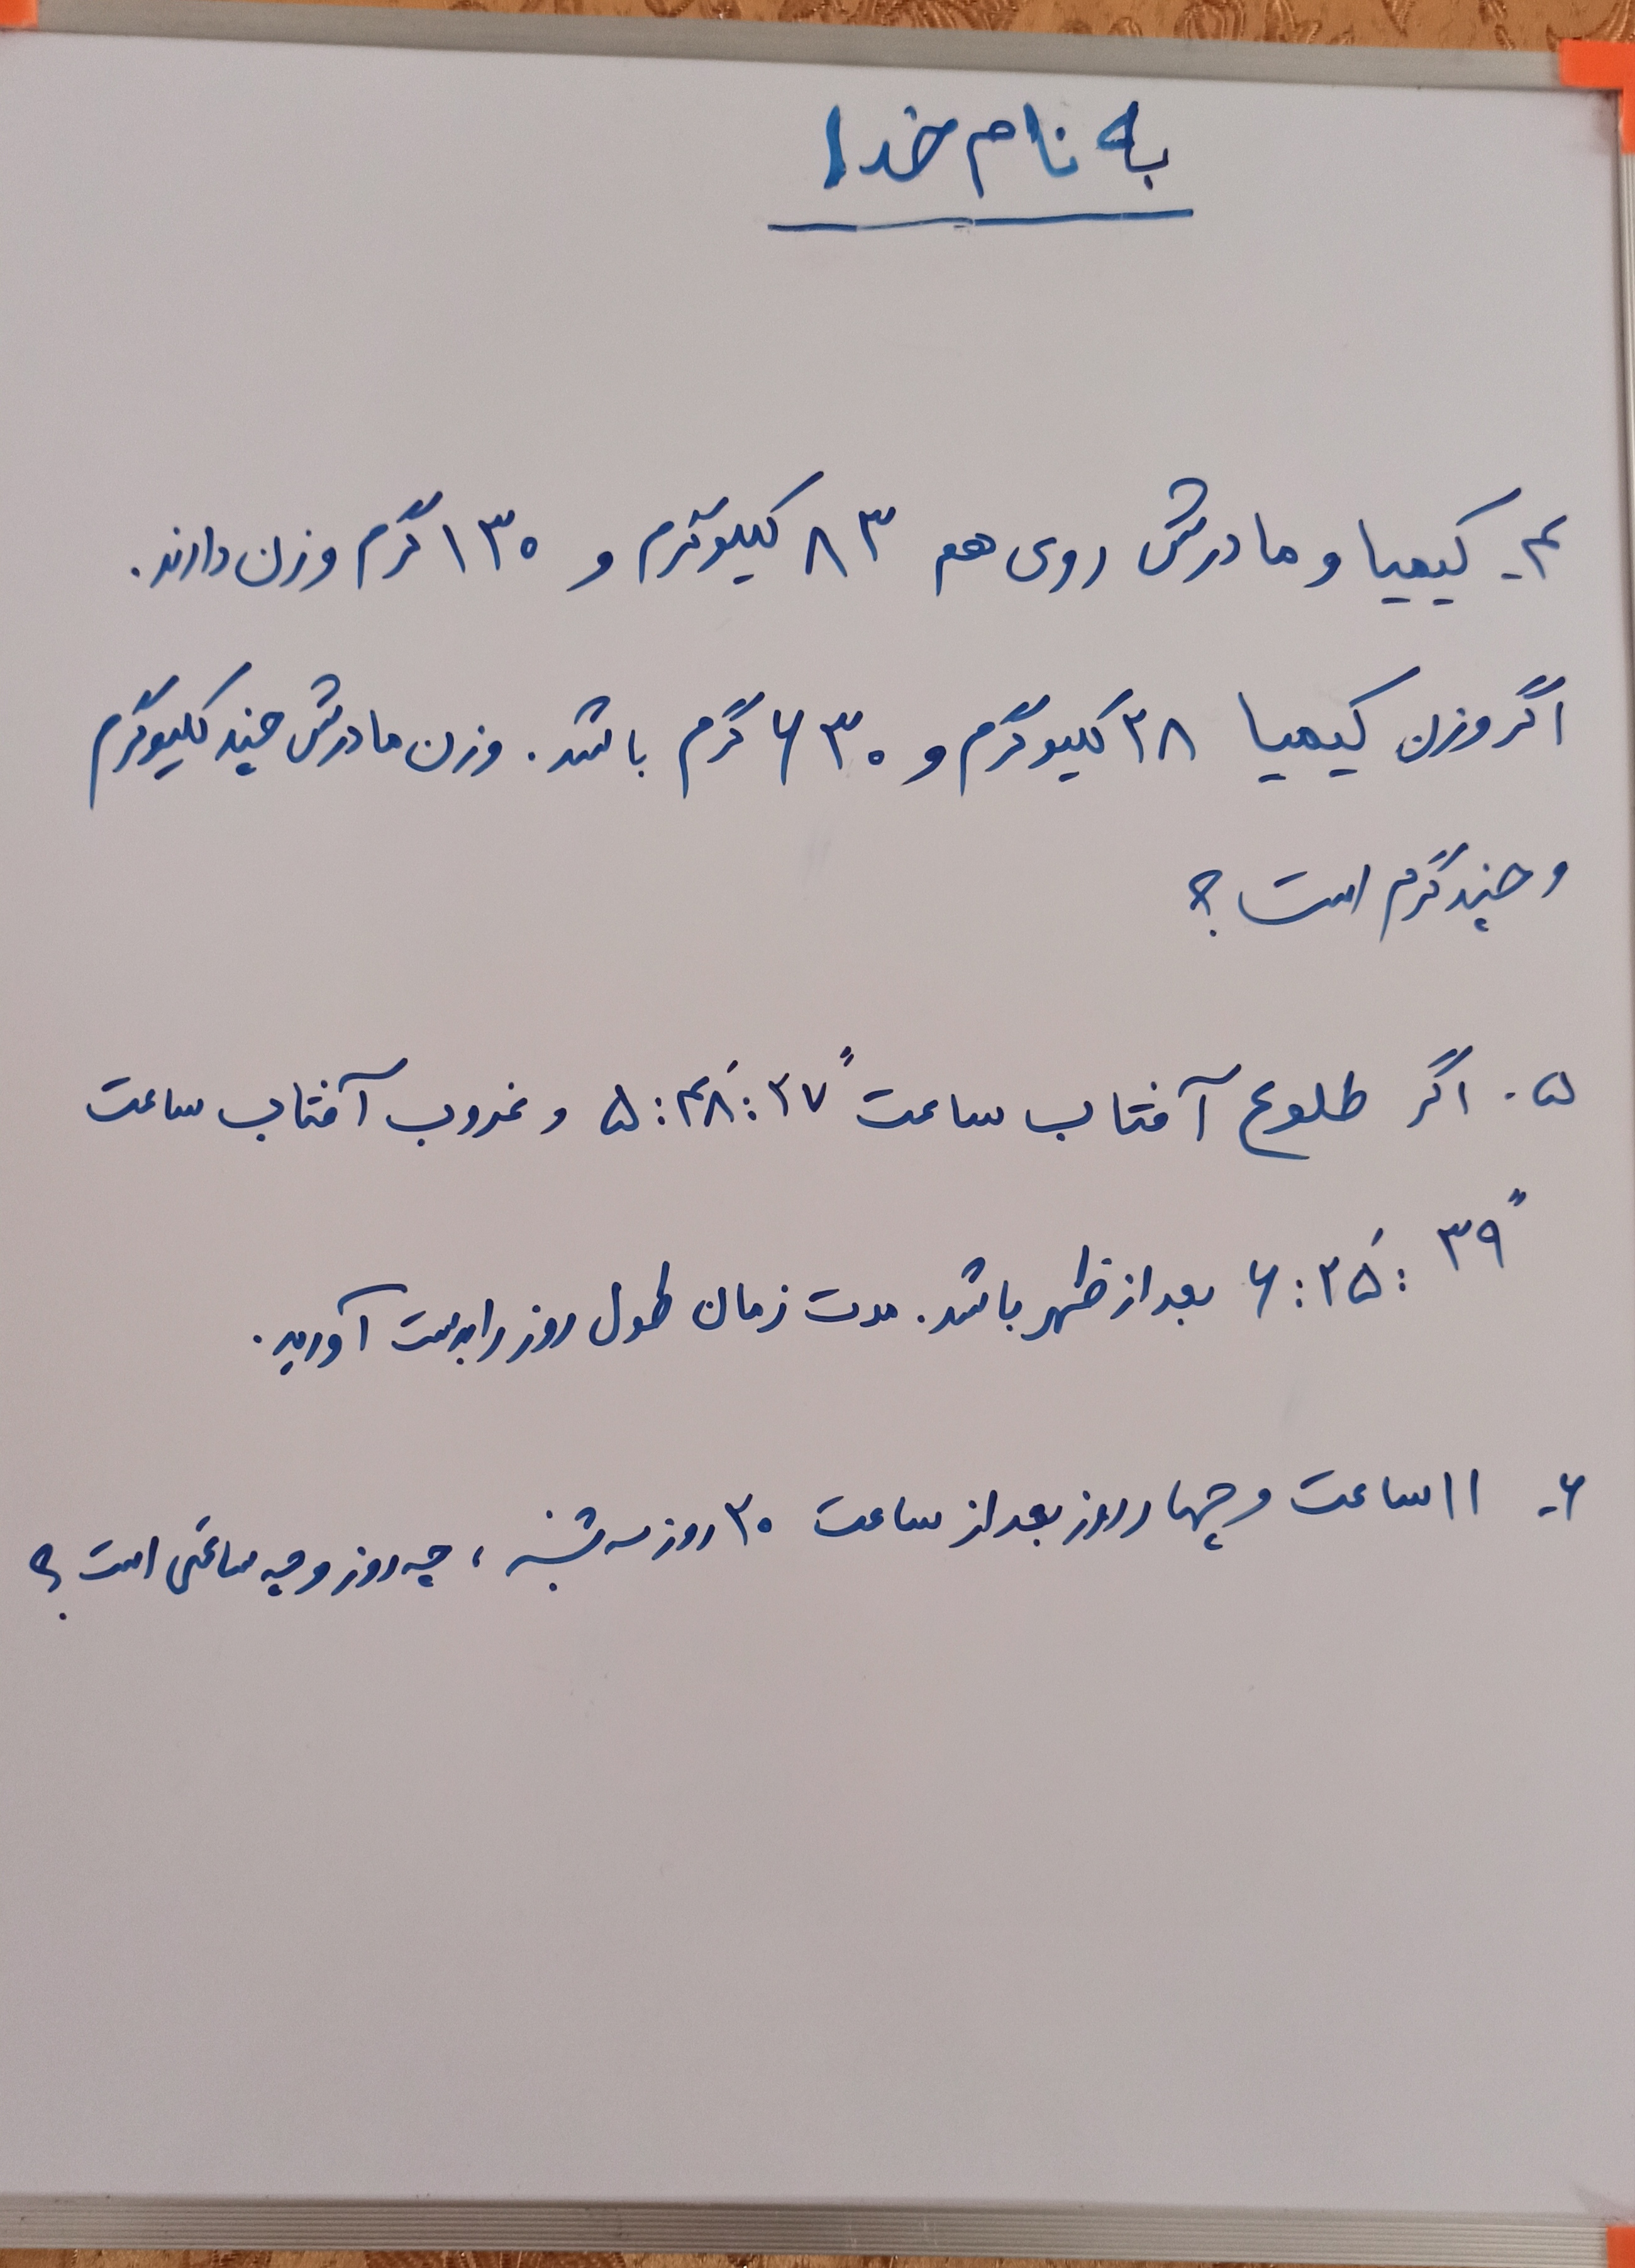 به نام خدا
۴- کیمیا و مادرش روی هم ۸۳ کیلوگرم و ۱۳۰ گرم وزن دارند.
اگر وزن کیمیا ۲۸ کیلوگرم و ۶۳۰ گرم باشد. وزن مادرش چند کیلوگرم
و چند گرم است؟
۵. اگر طلوع آفتاب ساعت ۵:۴۸′:۲۷″ و غروب آفتاب ساعت
۶:۲۵′:۳۹″ بعد از ظهر باشد. مدت زمان طول روز را بدست آورید.
۶- ۱۱ ساعت و چهار روز بعد از ساعت ۲۰ روز سه شنبه، چه روز و چه ساعتی است؟